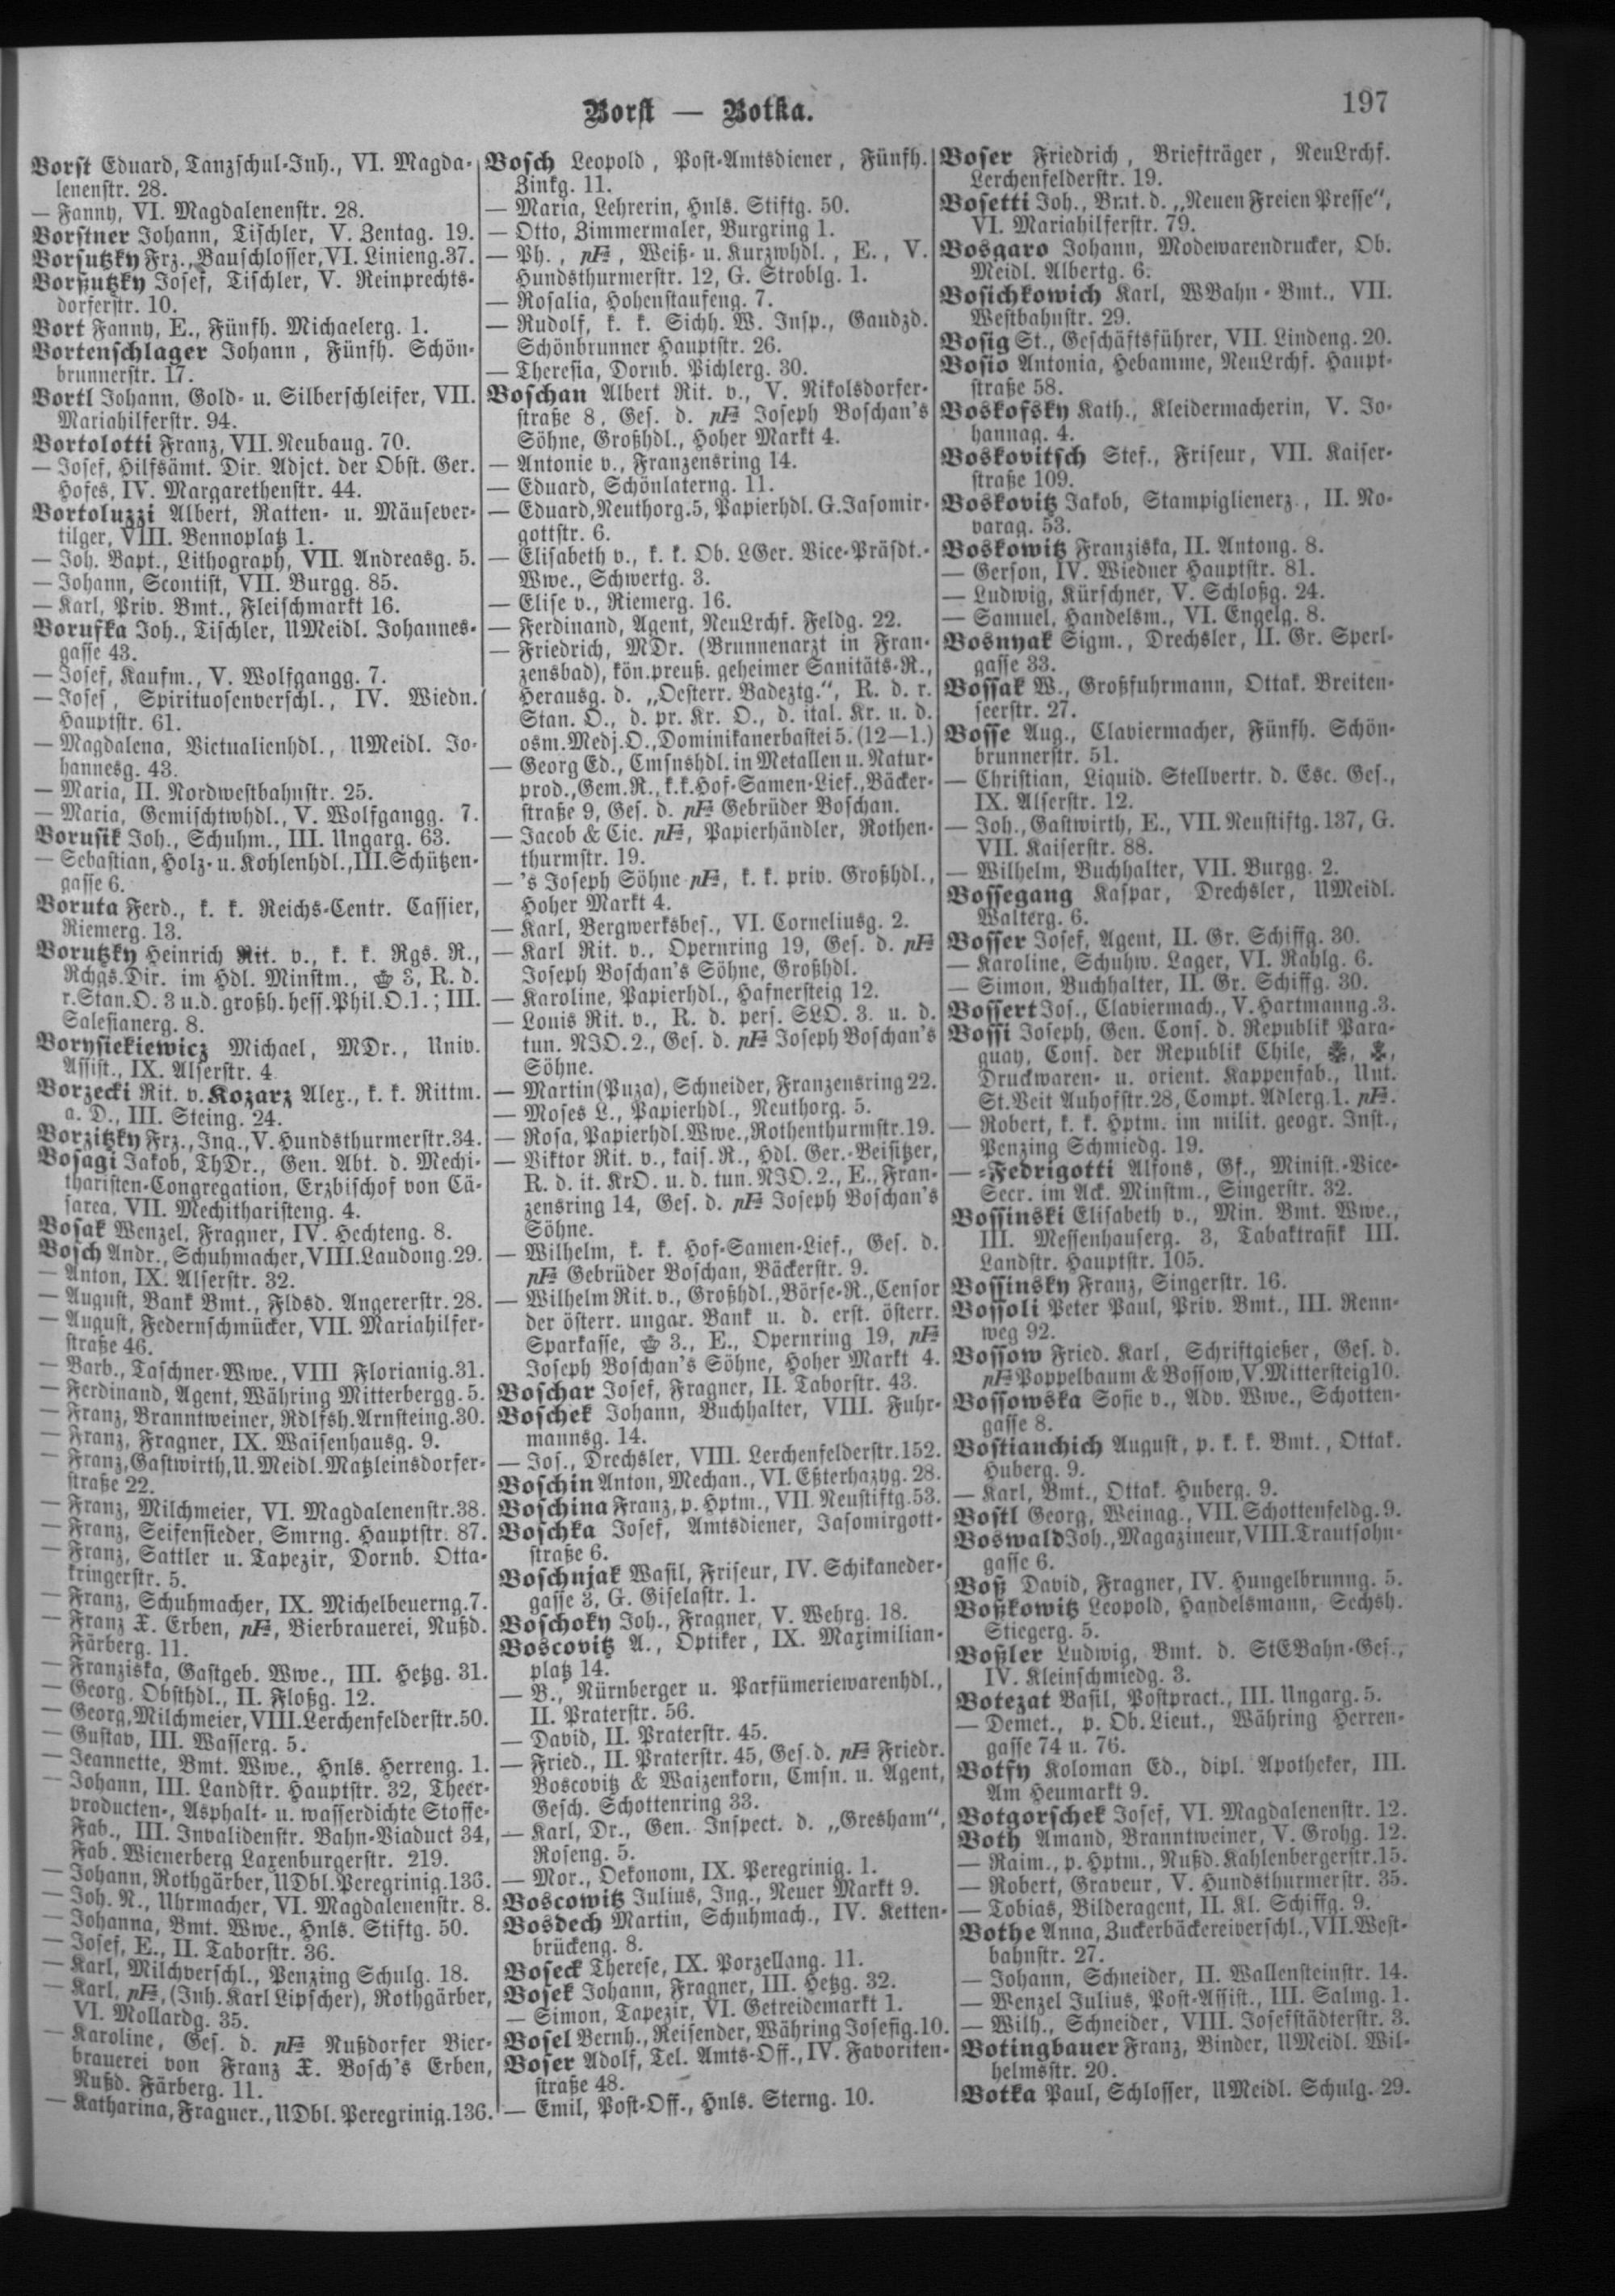 Borst — Botka.
197
Borst Eduard, Tanzschul-Inh., VI. Magda-
lenenstr. 28.
— Fanny, VI. Magdalenenstr. 28.
Borstner Johann, Tischler, V. Zentag. 19.
Borsutzky Frz., Bauschlosser, VI. Linieng. 37.
Borßutzky Josef, Tischler, V. Reinprechts-
dorferstr. 10.
Bort Fanny, E., Fünfh. Michaelerg. 1.
Bortenschlager Johann, Fünfh. Schön-
brunnerstr. 17.
Bortl Johann, Gold- u. Silberschleifer, VII.
Mariahilferstr. 94.
Bortolotti Franz, VII. Neubaug. 70.
— Josef, Hilfsämt. Dir. Adjct. der Obst. Ger.
Hofes, IV. Margarethenstr. 44.
Bortoluzzi Albert, Ratten- u. Mäusever-
tilger, VIII. Bennoplatz 1.
— Joh. Bapt., Lithograph, VII. Andreasg. 5.
— Johann, Scontist, VII. Burgg. 85.
— Karl, Priv. Bmt., Fleischmarkt 16.
Borufka Joh., Tischler, UMeidl. Johannes-
gasse 43.
— Josef, Kaufm., V. Wolfgangg. 7.
— Josef, Spirituosenverschl., IV. Wiedn.
Hauptstr. 61.
— Magdalena, Victualienhdl., UMeidl. Jo-
hannesg. 43.
— Maria, II. Nordwestbahnstr. 25.
— Maria, Gemischtwhdl., V. Wolfgangg. 7.
Borusik Joh., Schuhm., III. Ungarg. 63.
— Sebastian, Holz- u. Kohlenhdl., III. Schützen-
gasse 6.
Boruta Ferd., k. k. Reichs-Centr. Cassier,
Riemerg. 13.
Borutzky Heinrich Rit. v., k. k. Rgs. R.,
Rchgs. Dir. im Hdl. Minstm., 3, R. d.
r. Stan. O. 3 u. d. großh. hess. Phil. O. 1.; III.
Salesianerg. 8.
Borysiekiewicz Michael, MDr., Univ.
Assist., IX. Alserstr. 4.
Borzecki Rit. v. Kozarz Alex., k. k. Rittm.
a. D., III. Steing. 24.
Borzitzky Frz., Ing., V. Hundsthurmerstr. 34.
Bosagi Jakob, ThDr., Gen. Abt. d. Mechi-
tharisten-Congregation, Erzbischof von Cä-
sarea, VII. Mechitharisteng. 4.
Bosak Wenzel, Fragner, IV. Hechteng. 8.
Bosch Andr., Schuhmacher, VIII. Laudong. 29.
— Anton, IX. Alserstr. 32.
— August, Bank Bmt., Fldsd. Angererstr. 28.
— August, Federnschmücker, VII. Mariahilfer-
straße 46.
— Barb., Taschner-Wwe., VIII Florianig. 31.
— Ferdinand, Agent, Währing Mitterbergg. 5.
— Franz, Branntweiner, Rdlfsh. Arnsteing. 30.
— Franz, Fragner, IX. Waisenhausg. 9.
— Franz, Gastwirth, U. Meidl. Matzleinsdorfer-
straße 22.
— Franz, Milchmeier, VI. Magdalenenstr. 38.
— Franz, Seifensieder, Smrng. Hauptstr. 87.
— Franz, Sattler u. Tapezir, Dornb. Otta-
kringerstr. 5.
— Franz, Schuhmacher, IX. Michelbeuerng. 7.
— Franz X. Erben, pFa, Bierbrauerei, Nußd.
Färberg. 11.
— Franziska, Gastgeb. Wwe., III. Hetzg. 31.
— Georg, Obsthdl., II. Floßg. 12.
— Georg, Milchmeier, VIII. Lerchenfelderstr. 50.
— Gustav, III. Wasserg. 5.
— Jeannette, Bmt. Wwe., Hnls. Herreng. 1.
— Johann, III. Landstr. Hauptstr. 32, Theer-
producten-, Asphalt- u. wasserdichte Stoffe-
Fab., III. Invalidenstr. Bahn-Viaduct 34,
Fab. Wienerberg Laxenburgerstr. 219.
— Johann, Rothgärber, UDbl. Peregrinig. 136.
— Joh. N., Uhrmacher, VI. Magdalenenstr. 8.
— Johanna, Bmt. Wwe., Hnls. Stiftg. 50.
— Josef, E., II. Taborstr. 36.
— Karl, Milchverschl., Penzing Schulg. 18.
— Karl, pFa, (Inh. Karl Lipscher), Rothgärber,
VI. Mollardg. 35.
— Karoline, Ges. d. pFa Nußdorfer Bier-
brauerei von Franz X. Bosch's Erben,
Nußd. Färberg. 11.
— Katharina, Fragner., UDbl. Peregrinig. 136.
Bosch Leopold, Post-Amtsdiener, Fünfh.
Zinkg. 11.
— Maria, Lehrerin, Hnls. Stiftg. 50.
— Otto, Zimmermaler, Burgring 1.
— Ph., pFa, Weiß- u. Kurzwhdl., E., V.
Hundsthurmerstr. 12, G. Stroblg. 1.
— Rosalia, Hohenstaufeng. 7.
— Rudolf, k. k. Sichh. W. Insp., Gaudzd.
Schönbrunner Hauptstr. 26.
— Theresia, Dornb. Pichlerg. 30.
Boschan Albert Rit. v., V. Nikolsdorfer-
straße 8, Ges. d. pFa Joseph Boschan's
Söhne, Großhdl., Hoher Markt 4.
— Antonie v., Franzensring 14.
— Eduard, Schönlaterng. 11.
— Eduard, Neuthorg. 5, Papierhdl. G. Jasomir-
gottstr. 6.
— Elisabeth v., k. k. Ob. LGer. Vice-Präsdt.-
Wwe., Schwertg. 3.
— Elise v., Riemerg. 16.
— Ferdinand, Agent, NeuLrchf. Feldg. 22.
— Friedrich, MDr. (Brunnenarzt in Fran-
zensbad), kön. preuß. geheimer Sanitäts-R.,
Herausg. d. „Oesterr. Badeztg.“, R. d. r.
Stan. O., d. pr. Kr. O., d. ital. Kr. u. d.
osm. Medj. O., Dominikanerbastei 5. (12—1.)
— Georg Ed., Cmsnshdl. in Metallen u. Natur-
prod., Gem. R., k. k. Hof-Samen-Lief., Bäcker-
straße 9, Ges. d. pFa Gebrüder Boschan.
— Jacob & Cie. pFa, Papierhändler, Rothen-
thurmstr. 19.
— 's Joseph Söhne pFa, k. k. priv. Großhdl.,
Hoher Markt 4.
— Karl, Bergwerksbes., VI. Corneliusg. 2.
— Karl Rit. v., Opernring 19, Ges. d. pFa
Joseph Boschan's Söhne, Großhdl.
— Karoline, Papierhdl., Hafnersteig 12.
— Louis Rit. v., R. d. pers. SLO. 3. u. d.
tun. NIO. 2., Ges. d. pFa Joseph Boschan's
Söhne.
— Martin (Puza), Schneider, Franzensring 22.
— Moses L., Papierhdl., Neuthorg. 5.
— Rosa, Papierhdl. Wwe., Rothenthurmstr. 19.
— Viktor Rit. v., kais. R., Hdl. Ger.-Beisitzer,
R. d. it. KrO. u. d. tun. NIO. 2., E., Fran-
zensring 14, Ges. d. pFa Joseph Boschan's
Söhne.
— Wilhelm, k. k. Hof-Samen-Lief., Ges. d.
pFa Gebrüder Boschan, Bäckerstr. 9.
— Wilhelm Rit. v., Großhdl., Börse-R., Censor
der österr. ungar. Bank u. d. erst. österr.
Sparkasse, 3., E., Opernring 19, pFa
Joseph Boschan's Söhne, Hoher Markt 4.
Boschar Josef, Fragner, II. Taborstr. 43.
Boschek Johann, Buchhalter, VIII. Fuhr-
mannsg. 14.
— Jos., Drechsler, VIII. Lerchenfelderstr. 152.
Boschin Anton, Mechan., VI. Eßterhazyg. 28.
Boschina Franz, p. Hptm., VII. Neustiftg. 53.
Boschka Josef, Amtsdiener, Jasomirgott-
straße 6.
Boschnjak Wasil, Friseur, IV. Schikaneder-
gasse 3, G. Giselastr. 1.
Boschoky Joh., Fragner, V. Wehrg. 18.
Boscovitz A., Optiker, IX. Maximilian-
platz 14.
— B., Nürnberger u. Parfümeriewarenhdl.,
II. Praterstr. 56.
— David, II. Praterstr. 45.
— Fried., II. Praterstr. 45, Ges. d. pFa Friedr.
Boscovitz & Waizenkorn, Cmsn. u. Agent,
Gesch. Schottenring 33.
— Karl, Dr., Gen. Inspect. d. „Gresham“,
Roseng. 5.
— Mor., Oekonom, IX. Peregrinig. 1.
Boscowitz Julius, Ing., Neuer Markt 9.
Bosdech Martin, Schuhmach., IV. Ketten-
brückeng. 8.
Boseck Therese, IX. Porzellang. 11.
Bosek Johann, Fragner, III. Hetzg. 32.
— Simon, Tapezir, VI. Getreidemarkt 1.
Bosel Bernh., Reisender, Währing Josefig. 10.
Boser Adolf, Tel. Amts-Off., IV. Favoriten-
straße 48.
— Emil, Post-Off., Hnls. Sterng. 10.
Boser Friedrich, Briefträger, NeuLrchf.
Lerchenfelderstr. 19.
Bosetti Joh., Bmt. d. „Neuen Freien Presse“,
VI. Mariahilferstr. 79.
Bosgaro Johann, Modewarendrucker, Ob.
Meidl. Albertg. 6.
Bosichkowich Karl, WBahn-Bmt., VII.
Westbahnstr. 29.
Bosig St., Geschäftsführer, VII. Lindeng. 20.
Bosio Antonia, Hebamme, NeuLrchf. Haupt-
straße 58.
Boskofsky Kath., Kleidermacherin, V. Jo-
hannag. 4.
Boskovitsch Stef., Friseur, VII. Kaiser-
straße 109.
Boskovitz Jakob, Stampiglienerz., II. No-
varag. 53.
Boskowitz Franziska, II. Antong. 8.
— Gerson, IV. Wiedner Hauptstr. 81.
— Ludwig, Kürschner, V. Schloßg. 24.
— Samuel, Handelsm., VI. Engelg. 8.
Bosnyak Sigm., Drechsler, II. Gr. Sperl-
gasse 33.
Bossak W., Großfuhrmann, Ottak. Breiten-
seerstr. 27.
Bosse Aug., Claviermacher, Fünfh. Schön-
brunnerstr. 51.
— Christian, Liquid. Stellvertr. d. Esc. Ges.,
IX. Alserstr. 12.
— Joh., Gastwirth, E., VII. Neustiftg. 137, G.
VII. Kaiserstr. 88.
— Wilhelm, Buchhalter, VII. Burgg. 2.
Bossegang Kaspar, Drechsler, UMeidl.
Walterg. 6.
Bosser Josef, Agent, II. Gr. Schiffg. 30.
— Karoline, Schuhw. Lager, VI. Rahlg. 6.
— Simon, Buchhalter, II. Gr. Schiffg. 30.
Bossert Jos., Claviermach., V. Hartmanng. 3.
Bossi Joseph, Gen. Cons. d. Republik Para-
guay, Cons. der Republik Chile,
Druckwaren- u. orient. Kappenfab., Unt.
St. Veit Auhofstr. 28, Compt. Adlerg. 1. pFa.
— Robert, k. k. Hptm. im milit. geogr. Inst.,
Penzing Schmiedg. 19.
— -Fedrigotti Alfons, Gf., Minist.-Vice-
Secr. im Ack. Minstm., Singerstr. 32.
Bossinski Elisabeth v., Min. Bmt. Wwe.,
III. Messenhauserg. 3, Tabaktrafik III.
Landstr. Hauptstr. 105.
Bossinsky Franz, Singerstr. 16.
Bossoli Peter Paul, Priv. Bmt., III. Renn-
weg 92.
Bossow Fried. Karl, Schriftgießer, Ges. d.
pFa Poppelbaum & Bossow, V. Mittersteig 10.
Bossowska Sofie v., Adv. Wwe., Schotten-
gasse 8.
Bostianchich August, p. k. k. Bmt., Ottak.
Huberg. 9.
— Karl, Bmt., Ottak. Huberg. 9.
Bostl Georg, Weinag., VII. Schottenfeldg. 9.
Boswald Joh., Magazineur, VIII. Trautsohn-
gasse 6.
Boß David, Fragner, IV. Hungelbrunng. 5.
Boßkowitz Leopold, Handelsmann, Sechsh.
Stiegerg. 5.
Boßler Ludwig, Bmt. d. StEBahn-Ges.,
IV. Kleinschmiedg. 3.
Botezat Basil, Postpract., III. Ungarg. 5.
— Demet., p. Ob. Lieut., Währing Herren-
gasse 74 u. 76.
Botfy Koloman Ed., dipl. Apotheker, III.
Am Heumarkt 9.
Botgorschek Josef, VI. Magdalenenstr. 12.
Both Amand, Branntweiner, V. Grohg. 12.
— Raim., p. Hptm., Nußd. Kahlenbergerstr. 15.
— Robert, Graveur, V. Hundsthurmerstr. 35.
— Tobias, Bilderagent, II. Kl. Schiffg. 9.
Bothe Anna, Zuckerbäckereiverschl., VII. West-
bahnstr. 27.
— Johann, Schneider, II. Wallensteinstr. 14.
— Wenzel Julius, Post-Assist., III. Salmg. 1.
— Wilh., Schneider, VIII. Josefstädterstr. 3.
Botingbauer Franz, Binder, UMeidl. Wil-
helmsstr. 20.
Botka Paul, Schlosser, UMeidl. Schulg. 29.